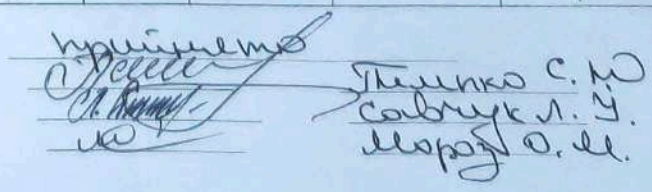 прийнято
Тимпко С. Ю
Савчук Л. У.
Мороз О. М.